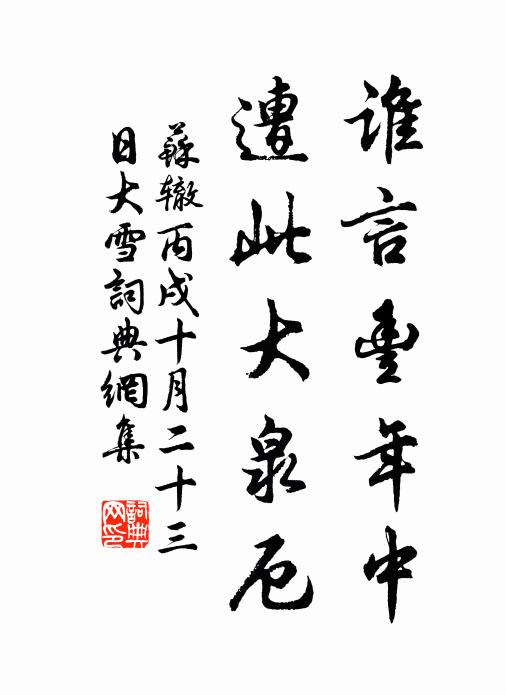 誰言豐年中
遭此大泉厄
蘇轍丙戌十月二十三
日大雪詞典網集
詞典
网印